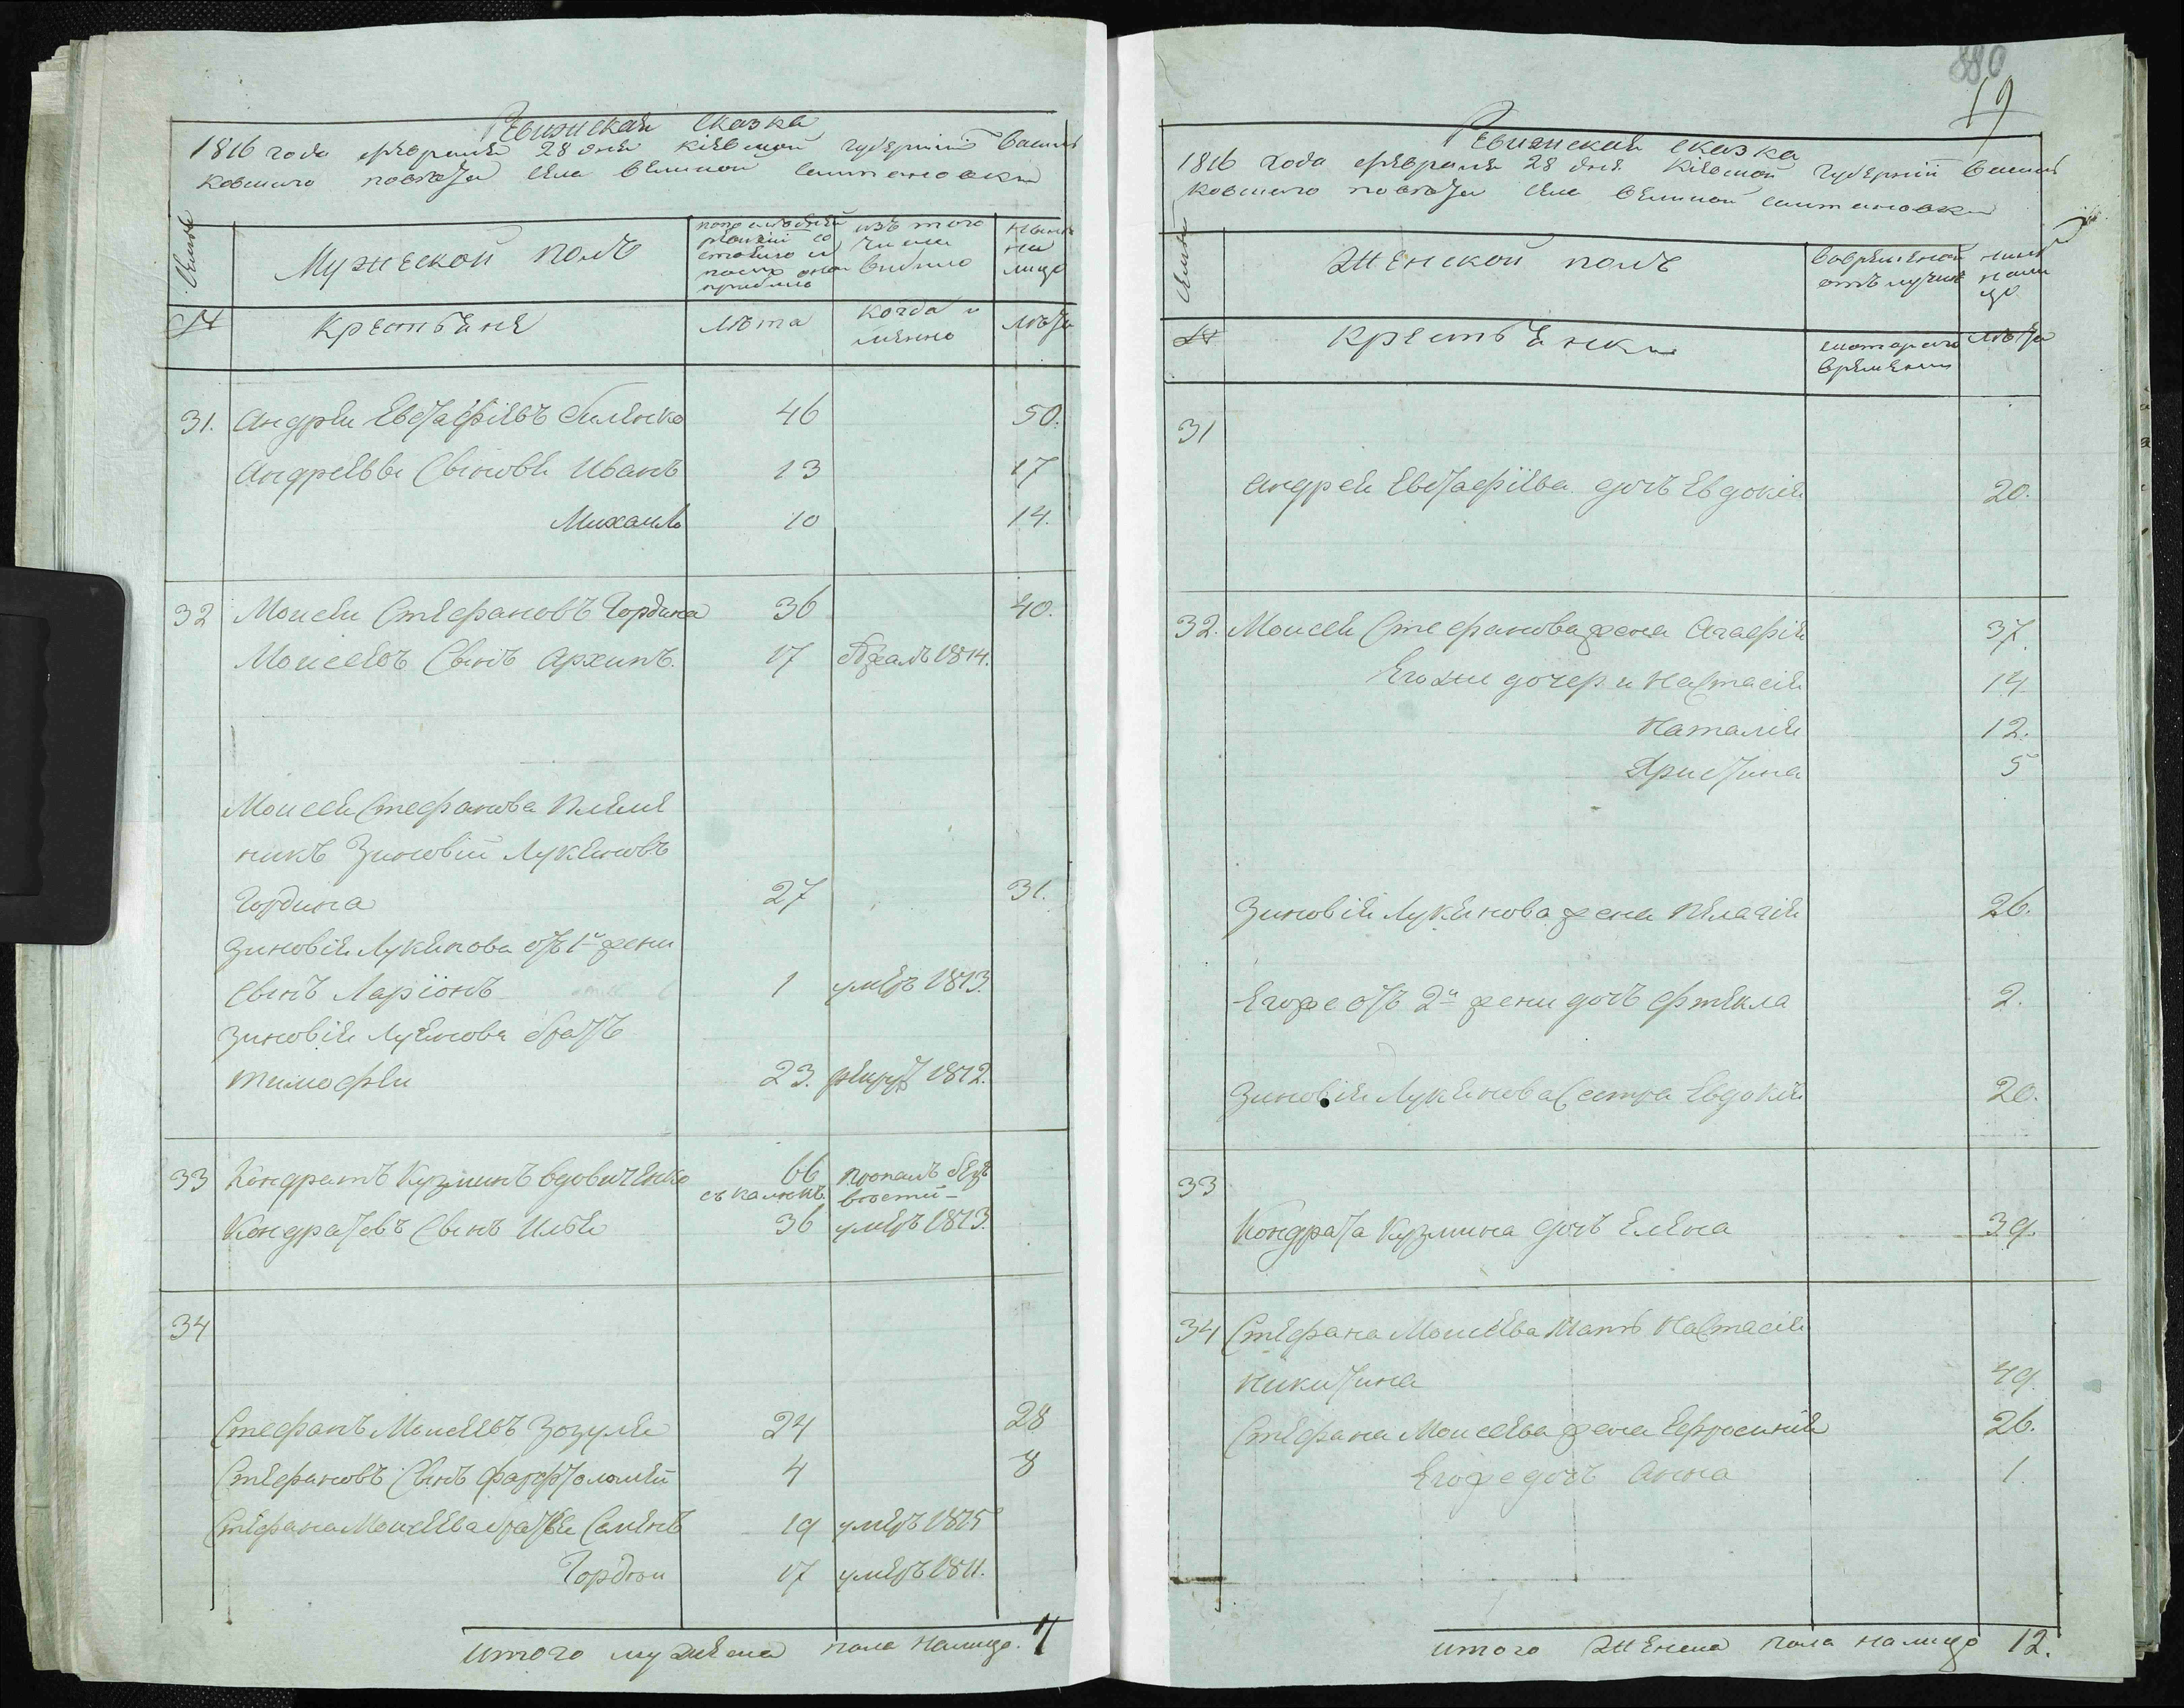 Ревизская сказка
1816 года февраля 28 дня Кіевской губерніи Василь
ковского повѣта села великой салтановки
Семьи
Мужеской полъ
по последней ревизіи со стояло и после оной прибыло
изъ того числа выбыло
ныне на лицо
№
Крестьяне
Лѣта
когда и менно
лѣта
31. Андрей Евстафіевъ Биленко 46 50.
Андреевы Сыновья Иванъ 13 17
Михаилъ 10 14.
32 Моисей Стефановъ Гордина 36 40.
Моисеевъ Сынъ Архипъ. 17 бѣжалъ 1814.
Моисея Стефанова племе
никъ Зиновій Лукяновъ
Гордина 27 31.
Зиновія Лукянова отъ 1й жены
Сынъ Ларіонъ 1 умеръ 1813.
Зиновія Лукянова братъ
Тимофей 23. рекрут 1812.
33 Кондратъ Кузминъ вдовиченко 66 пропалъ безъ
вести
Кондратовъ Сынъ Илья 36 умеръ 1813.
34
Стефанъ Моисеевъ Зозуля 24 28
Стефановъ Сынъ Фарфоломей 4 8
Стефана Моисеева братья Семенъ 19 умеръ 1815
Гордѣи 17 умеръ 1811.
Итого мужеска пола налицо. 7
880
19
Ревизская сказка
1816 года февраля 28 дня Кіевской губерніи Василь
ковского повѣта села великой салтановки
Семьи
Женской полъ
во временной отлучке
ныне нали цо.
№
Крестьянки
с которого времени
лѣта
31
Андрея Евстафіева дочь Евдокія 20.
32. Моисея Стефанова жена Агафія 37.
Егоже дочери Настасія 14
Наталія 12.
Христина 5
Зиновія Лукянова жена Пелагія 26.
Егоже отъ 2й жены дочь Фтекла 2.
Зиновія Лукянова Сестра Евдокія 20.
33
Кондрата Кузмина дочь Елена 39.
34 Стефана Моисеева Мать Настасія
Никитина 49.
Стефана Моисеева жена Ефросинія 26.
Егоже дочь Анна 1.
Итого Женска пола налицо 12.